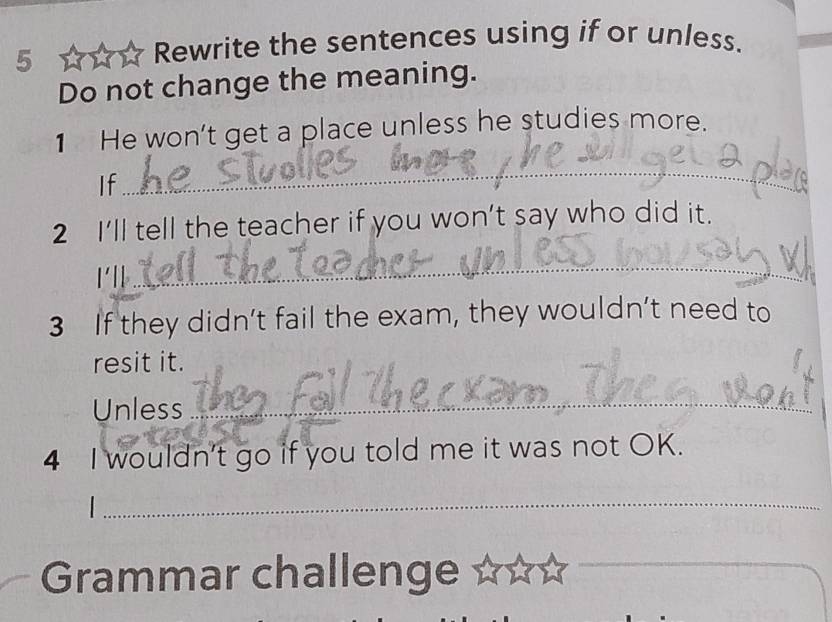 5 ☆☆☆ Rewrite the sentences using if or unless.
Do not change the meaning.
1 He won't get a place unless he studies more.
If he studies more, he will get a place
2 I'll tell the teacher if you won't say who did it.
I'll tell the teacher unless you say wh
3 If they didn't fail the exam, they wouldn't need to
resit it.
Unless they fail the exam, they won't
to it
4 I wouldn't go if you told me it was not OK.
I
Grammar challenge ☆☆☆